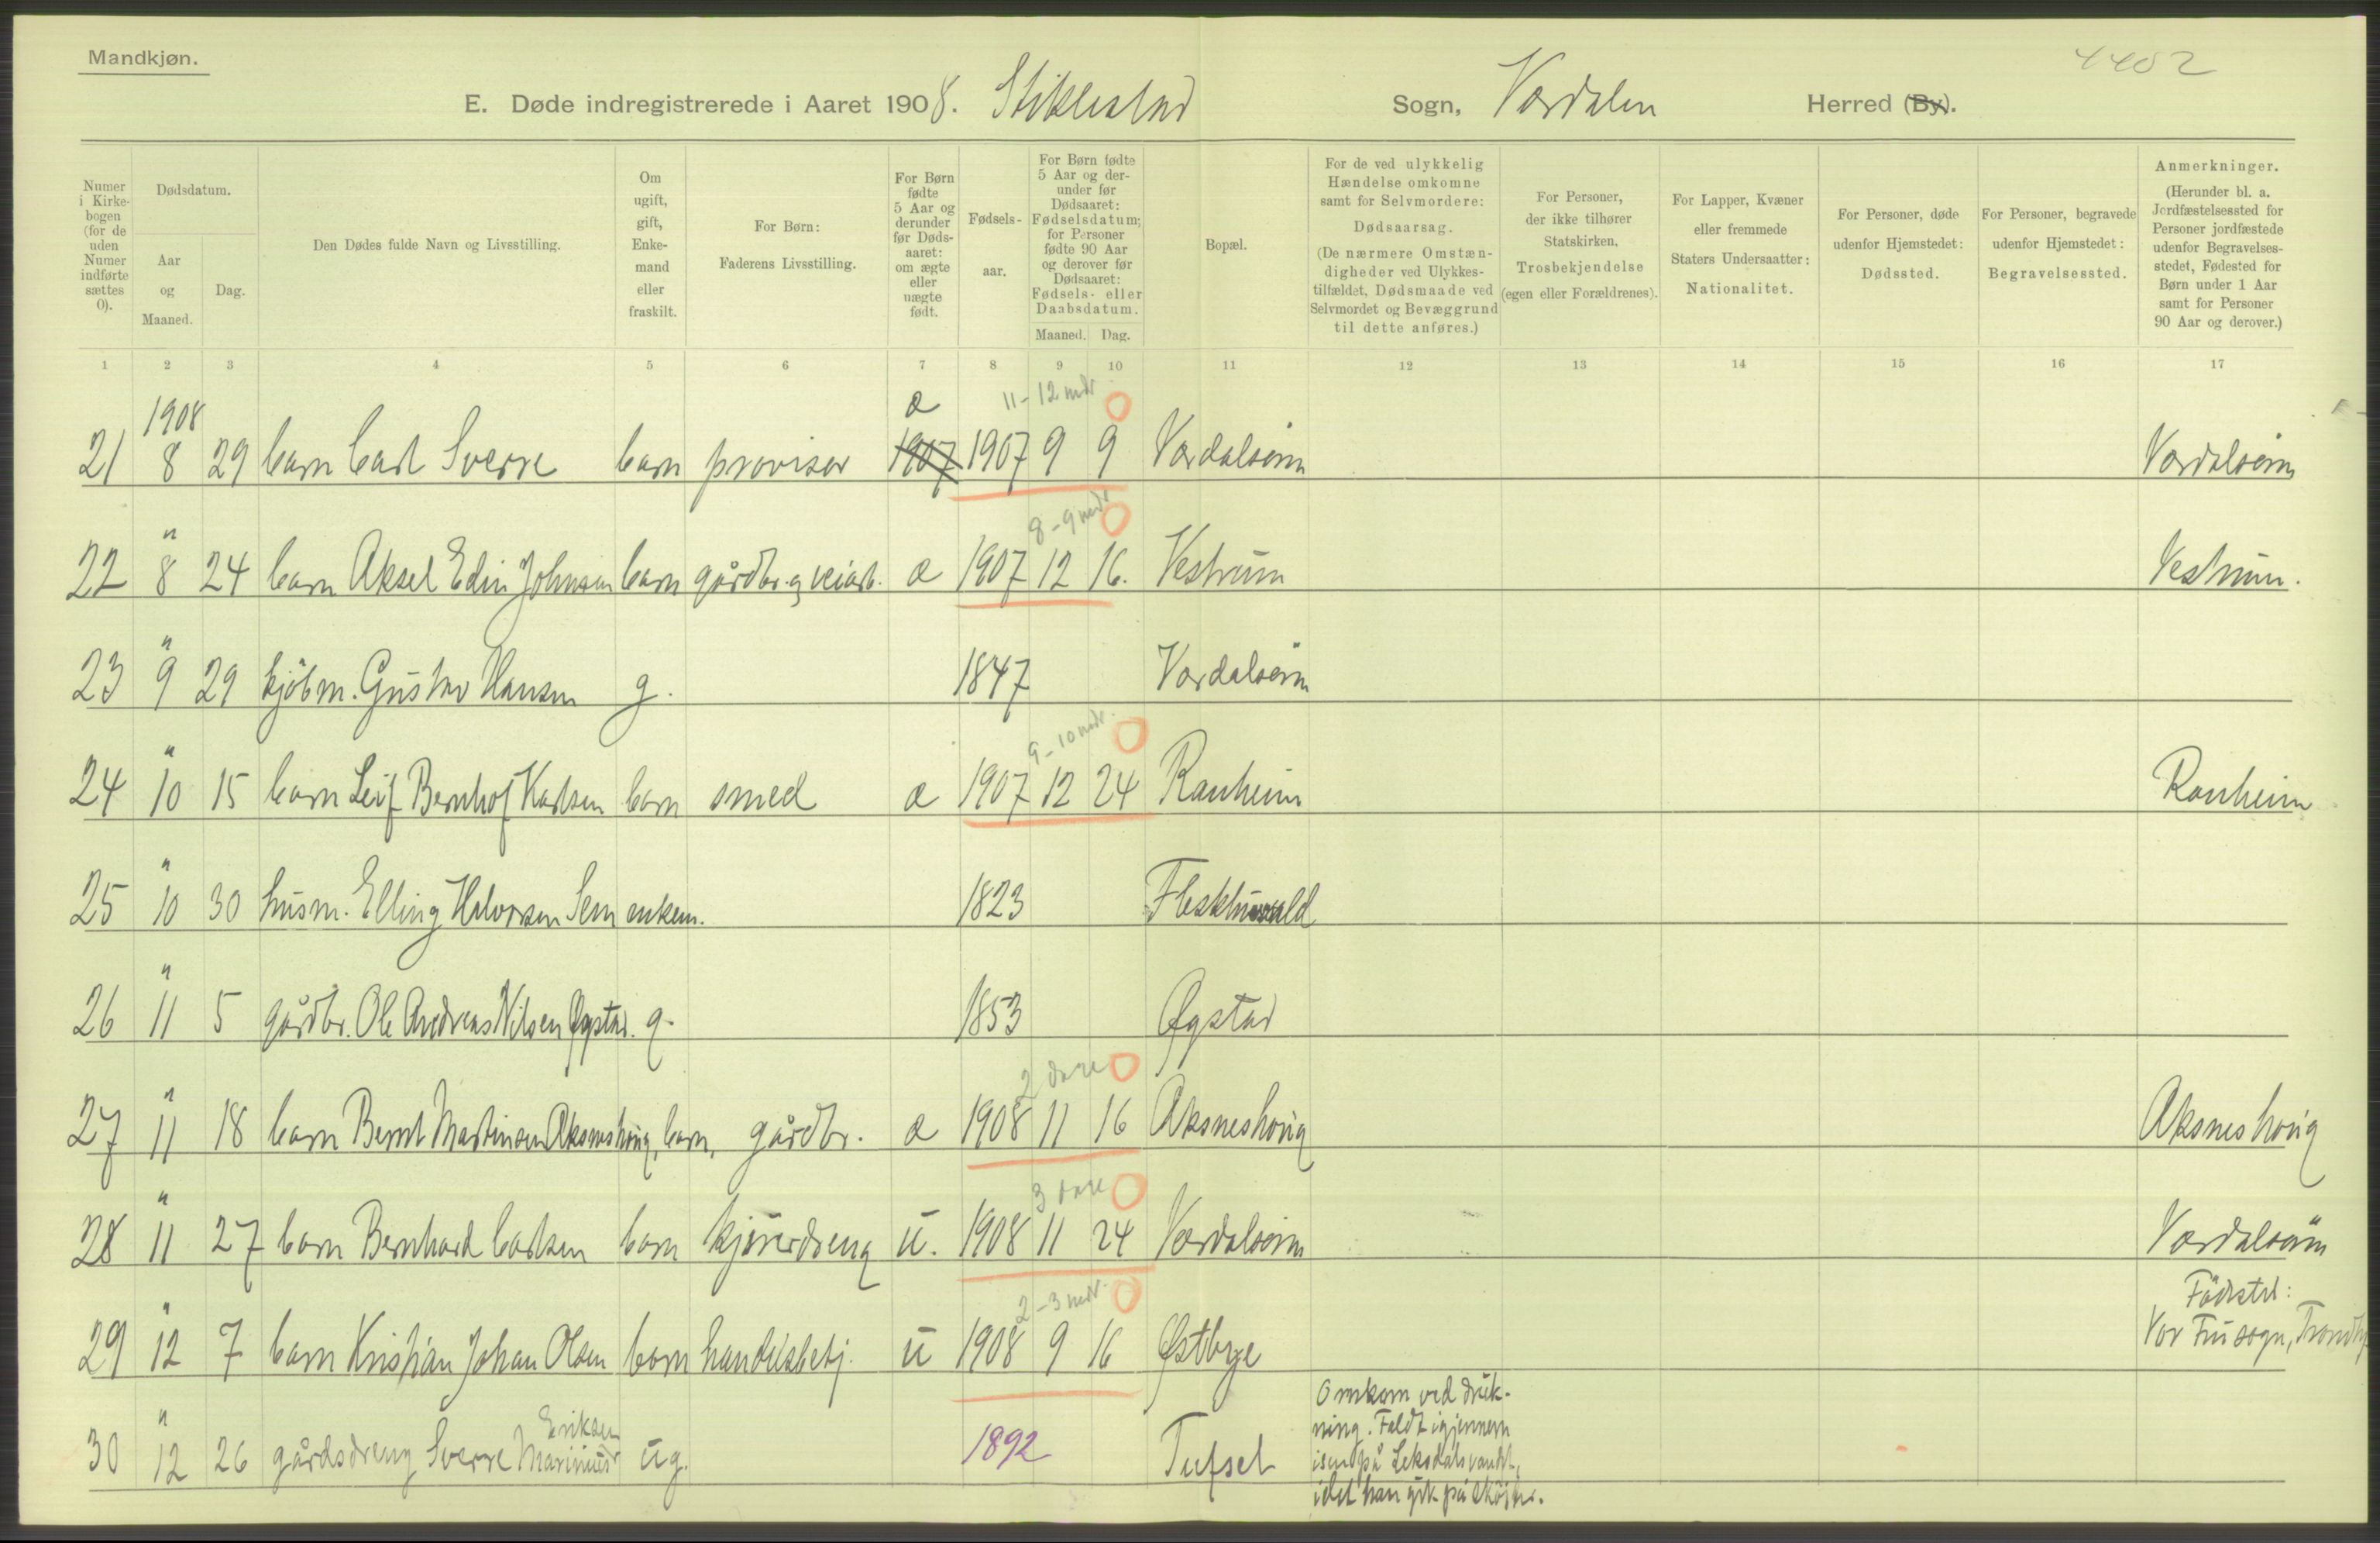 Mandkjøn.
4402
E. Døde indregistrerede i Aaret 1908. Stiklestad Sogn, Værdalen Herred (By).
Numer i Kirke-bogen (for de uden Numer indførte sættes 0).
Dødsdatum.
Aar og Maaned.
Dag.
Den Dødes fulde Navn og Livsstilling.
Om ugift, gift, Enke-mand eller fraskilt.
For Børn: Faderens Livsstilling.
For Børn fødte 5 Aar og derunder før Døds-aaret: om ægte eller uægte født.
Fødsels-aar.
For Børn fødte 5 Aar og der-under før Dødsaaret: Fødselsdatum; for Personer fødte 90 Aar og derover før Dødsaaret: Fødsels- eller Daabsdatum.
Maaned. Dag.
Bopæl.
For de ved ulykkelig Hændelse omkomne samt for Selvmordere: Dødsaarsag. (De nærmere Omstæn-digheder ved Ulykkes-tilfældet, Dødsmaade ved Selvmordet og Bevæggrund til dette anføres.)
For Personer, der ikke tilhører Statskirken, Trosbekjendelse (egen eller Forældrenes).
For Lapper, Kvæner eller fremmede Staters Undersaatter: Nationalitet.
For Personer, døde udenfor Hjemstedet: Dødssted.
For Personer, begravede udenfor Hjemstedet: Begravelsessted.
Anmerkninger. (Herunder bl. a. Jordfæstelsessted for Personer jordfæstede udenfor Begravelses-stedet, Fødested for Børn under 1 Aar samt for Personer 90 Aar og derover.)
1 2 3 4 5 6 7 8 9 10 11 12 13 14 15 16 17
1908 æ 11-12 mdr
21 8 29 barn Carl Sverre barn provisor 1907 1907 9 9 Værdalsøren Værdalsøren
" 8-9 mdr
22 8 24 barn Aksel Edin Johnsen barn gårdbr. og veiarb. æ 1907 12 16. Vestrum Vestrum.
"
23 9 29 kjöbm. Gustav Hansen g. 1847 Værdalsøren
" 9-10 mdr.
24 10 15 barn Leif Bernhof Karlsen barn smed æ 1907 12 24 Ranheim Ranheim
"
25 10 30 husm. Elling Halvorsen Sem enkem. 1823
"
26 11 5 gårdbr. Ole Andreas Nilsen Øgstad. g. 1853 Øgstad
" 2 dage
27 11 18 barn Bernt Martinsen Aksneshøug, barn, gårdbr. æ 1908 11 16 Aksneshøug Aksneshøug
" 3 dage
28 11 27 barn Bernhard Carlsen barn kjøredreng u. 1908 11 24 Værdalsøren Værdalsøren
" 2-3 mdr. Födsted:
29 12 7 barn Kristian Johan Olsen barn handelsbetj. u 1908 9 16 Østbye Vor Fru sogn, Trondhj.
" Eriksen Omkom ved druk-
ning. Faldt igjennem
30 12 26 gårdsdreng Sverre Marinius ug. 1892 Tufset isen på Leksdalsvandt.,
idet han gik på skøiter.